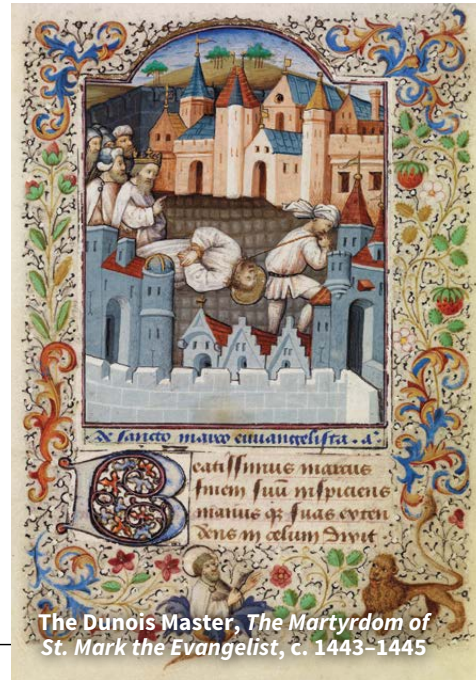 De sancto marco euuangelista . a᷎
Beatissimus marcus
finem suū inspiciens
manus q̄ suas exten
dens in celum dixit
The Dunois Master, The Martyrdom of
St. Mark the Evangelist, c. 1443–1445